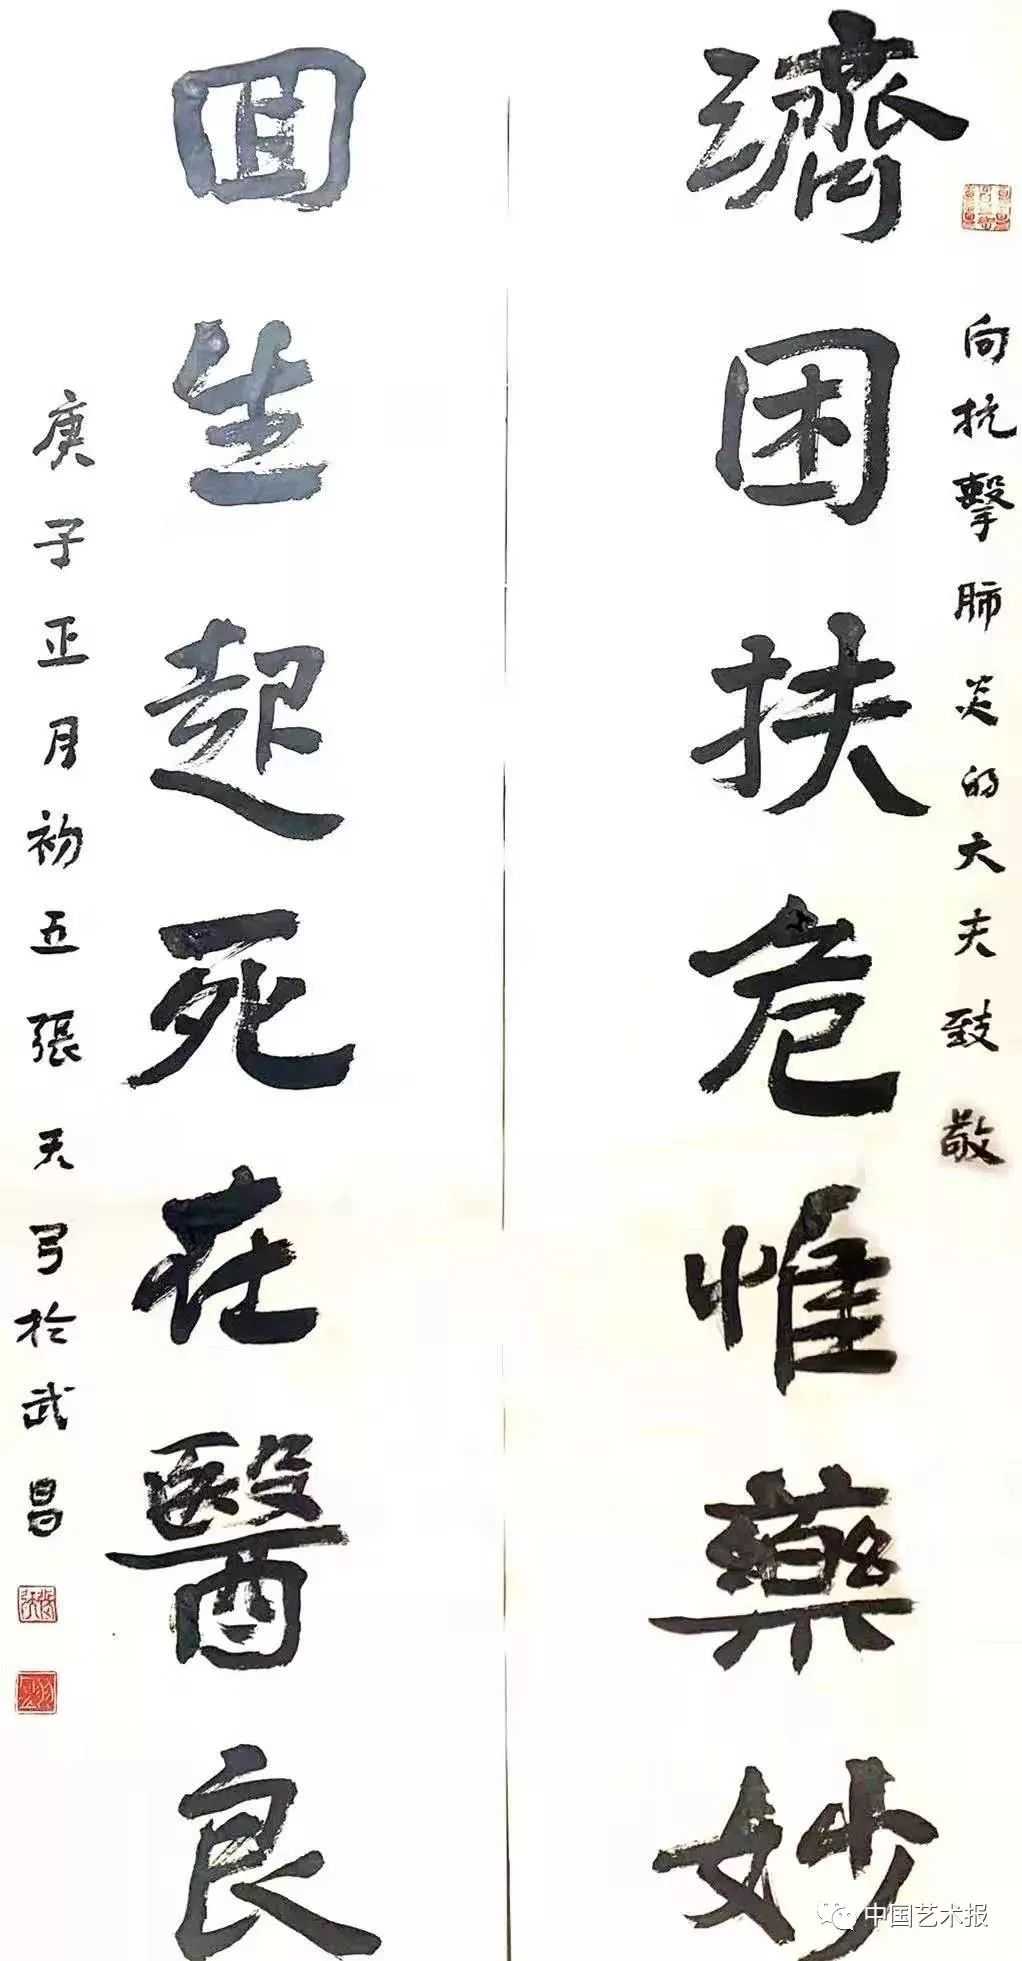 向抗擊肺炎的大夫致敬
濟困扶危惟藥妙
回生起死在醫良
庚子正月初五張天弓於武昌
中国艺术报